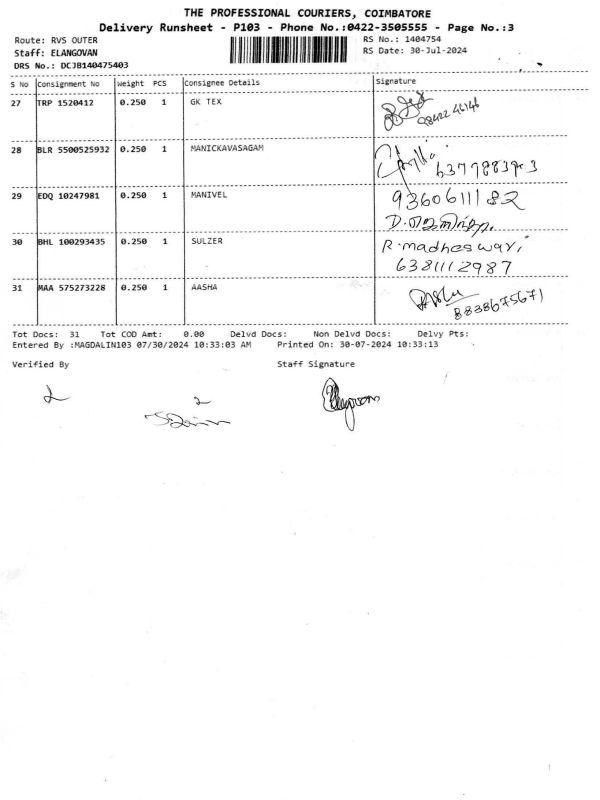 THE PROFESSIONAL COURIERS, COIMBATORE
Delivery Runsheet - P103 - Phone No.:0422-3505555 - Page No.:3
Route: RVS OUTER RS No.: 1404754
Staff: ELANGOVAN RS Date: 30-Jul-2024
DRS No.: DCJB140475403
S No Consignment No Weight PCS Consignee Details Signature
27 TRP 1520412 0.250 1 GK TEX
98422 46146
28 BLR 5500525932 0.250 1 MANICKAVASAGAM
29 EDQ 10247981 0.250 1 MANIVEL 9360611182
30 BHL 100293435 0.250 1 SULZER R.madheswari
6381112987
31 MAA 575273228 0.250 1 AASHA
8838675671
Tot Docs: 31 Tot COD Amt: 0.00 Delvd Docs: Non Delvd Docs: Delvy Pts:
Entered By :MAGDALIN103 07/30/2024 10:33:03 AM Printed On: 30-07-2024 10:33:13
Verified By Staff Signature
Elangovan